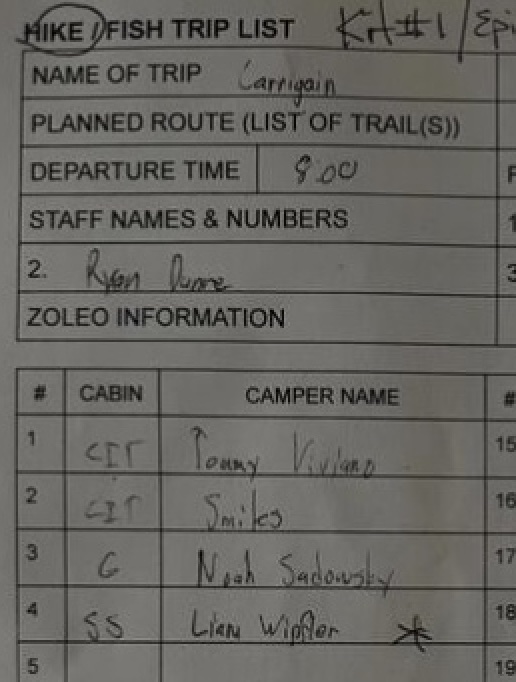 HIKE / FISH TRIP LIST Kit #1 / Epi
NAME OF TRIP Carrigain
PLANNED ROUTE (LIST OF TRAIL(S))
DEPARTURE TIME 8:00 F
STAFF NAMES & NUMBERS 1
2. Ryan Dunne 3
ZOLEO INFORMATION
# CABIN CAMPER NAME #
1 CIT Tommy Viviano 15
2 CIT Smiles 16
3 G Noah Sadowsky 17
4 SS Liam Wipfler * 18
5 19